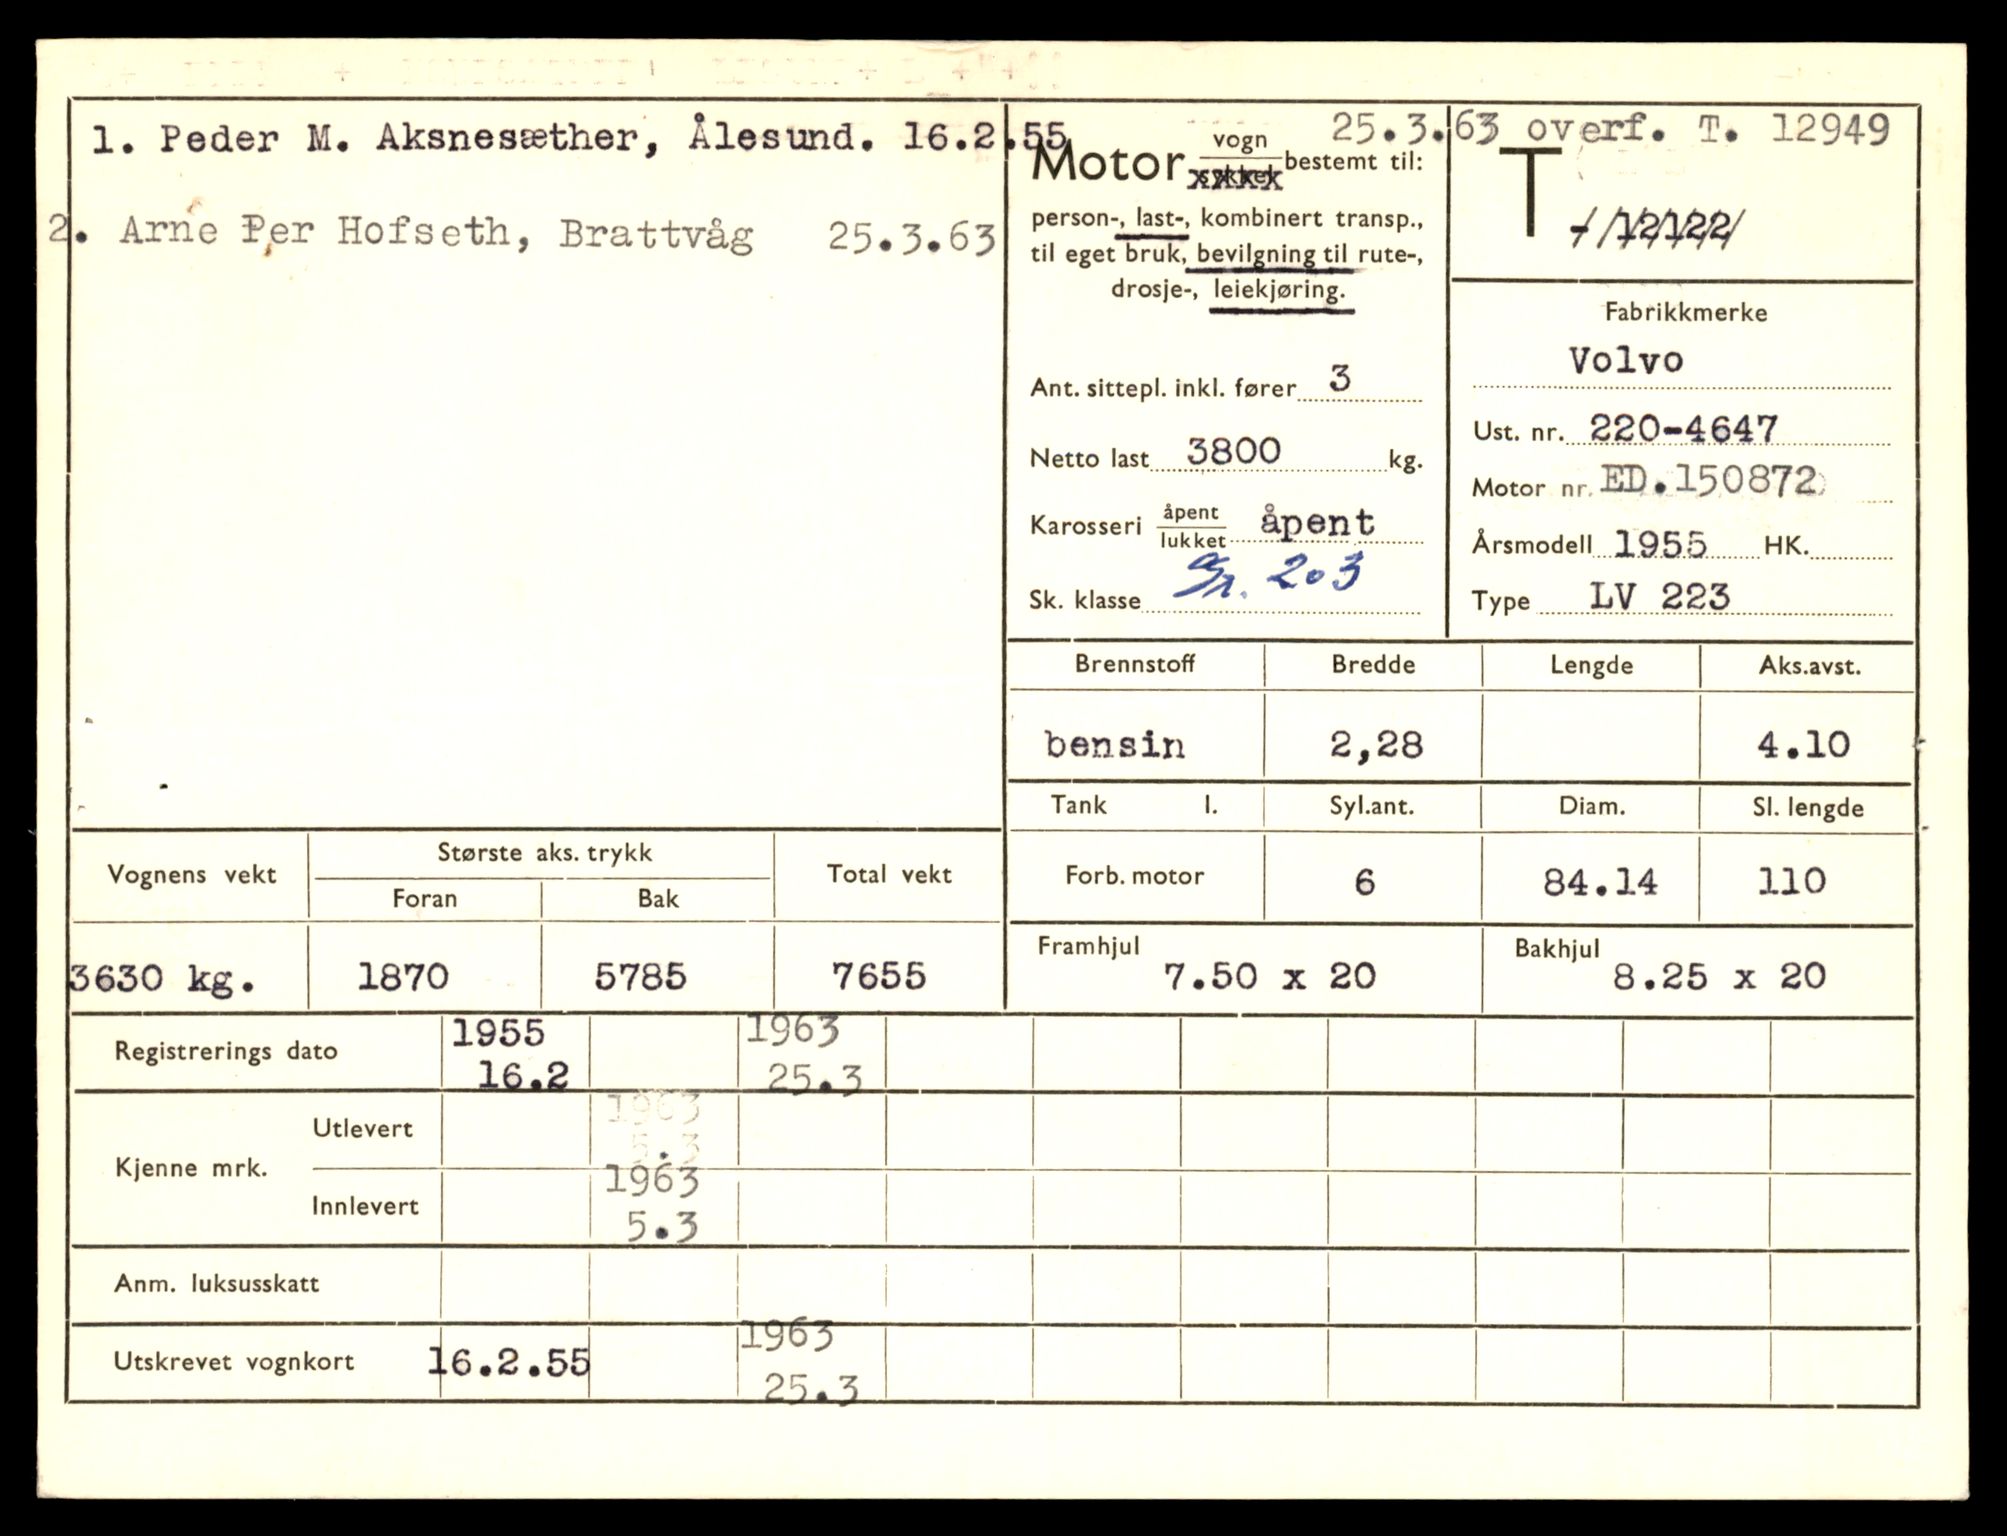 1. Peder M. Aksnesæther, Ålesund. 16.2.55
2. Arne Per Hofseth, Brattvåg 25.3.63
25.3.63 overf. T. 12949
Motor vogn bestemt til:
person-, last-, kombinert transp.,
til eget bruk, bevilgning til rute-,
drosje-, leiekjøring.
Ant. sittepl. inkl. fører 3
Netto last 3800 kg.
Karosseri åpent
lukket åpent
Sk. klasse gr. 203
T - 12122
Fabrikkmerke
Volvo
Ust. nr. 220-4647
Motor nr. ED.150872
Årsmodell 1955 HK.
Type LV 223
Brennstoff Bredde Lengde Aks.avst.
bensin 2,28 4.10
Tank l. Syl.ant. Diam. Sl. lengde
Forb. motor 6 84.14 110
Framhjul 7.50 x 20 Bakhjul 8.25 x 20
Vognens vekt Største aks. trykk Total vekt
Foran Bak
3630 kg. 1870 5785 7655
Registrerings dato 1955 1963
16.2 25.3
Kjenne mrk. Utlevert 1963
5.3
Innlevert 1963
5.3
Anm. luksusskatt
Utskrevet vognkort 16.2.55 1963
25.3